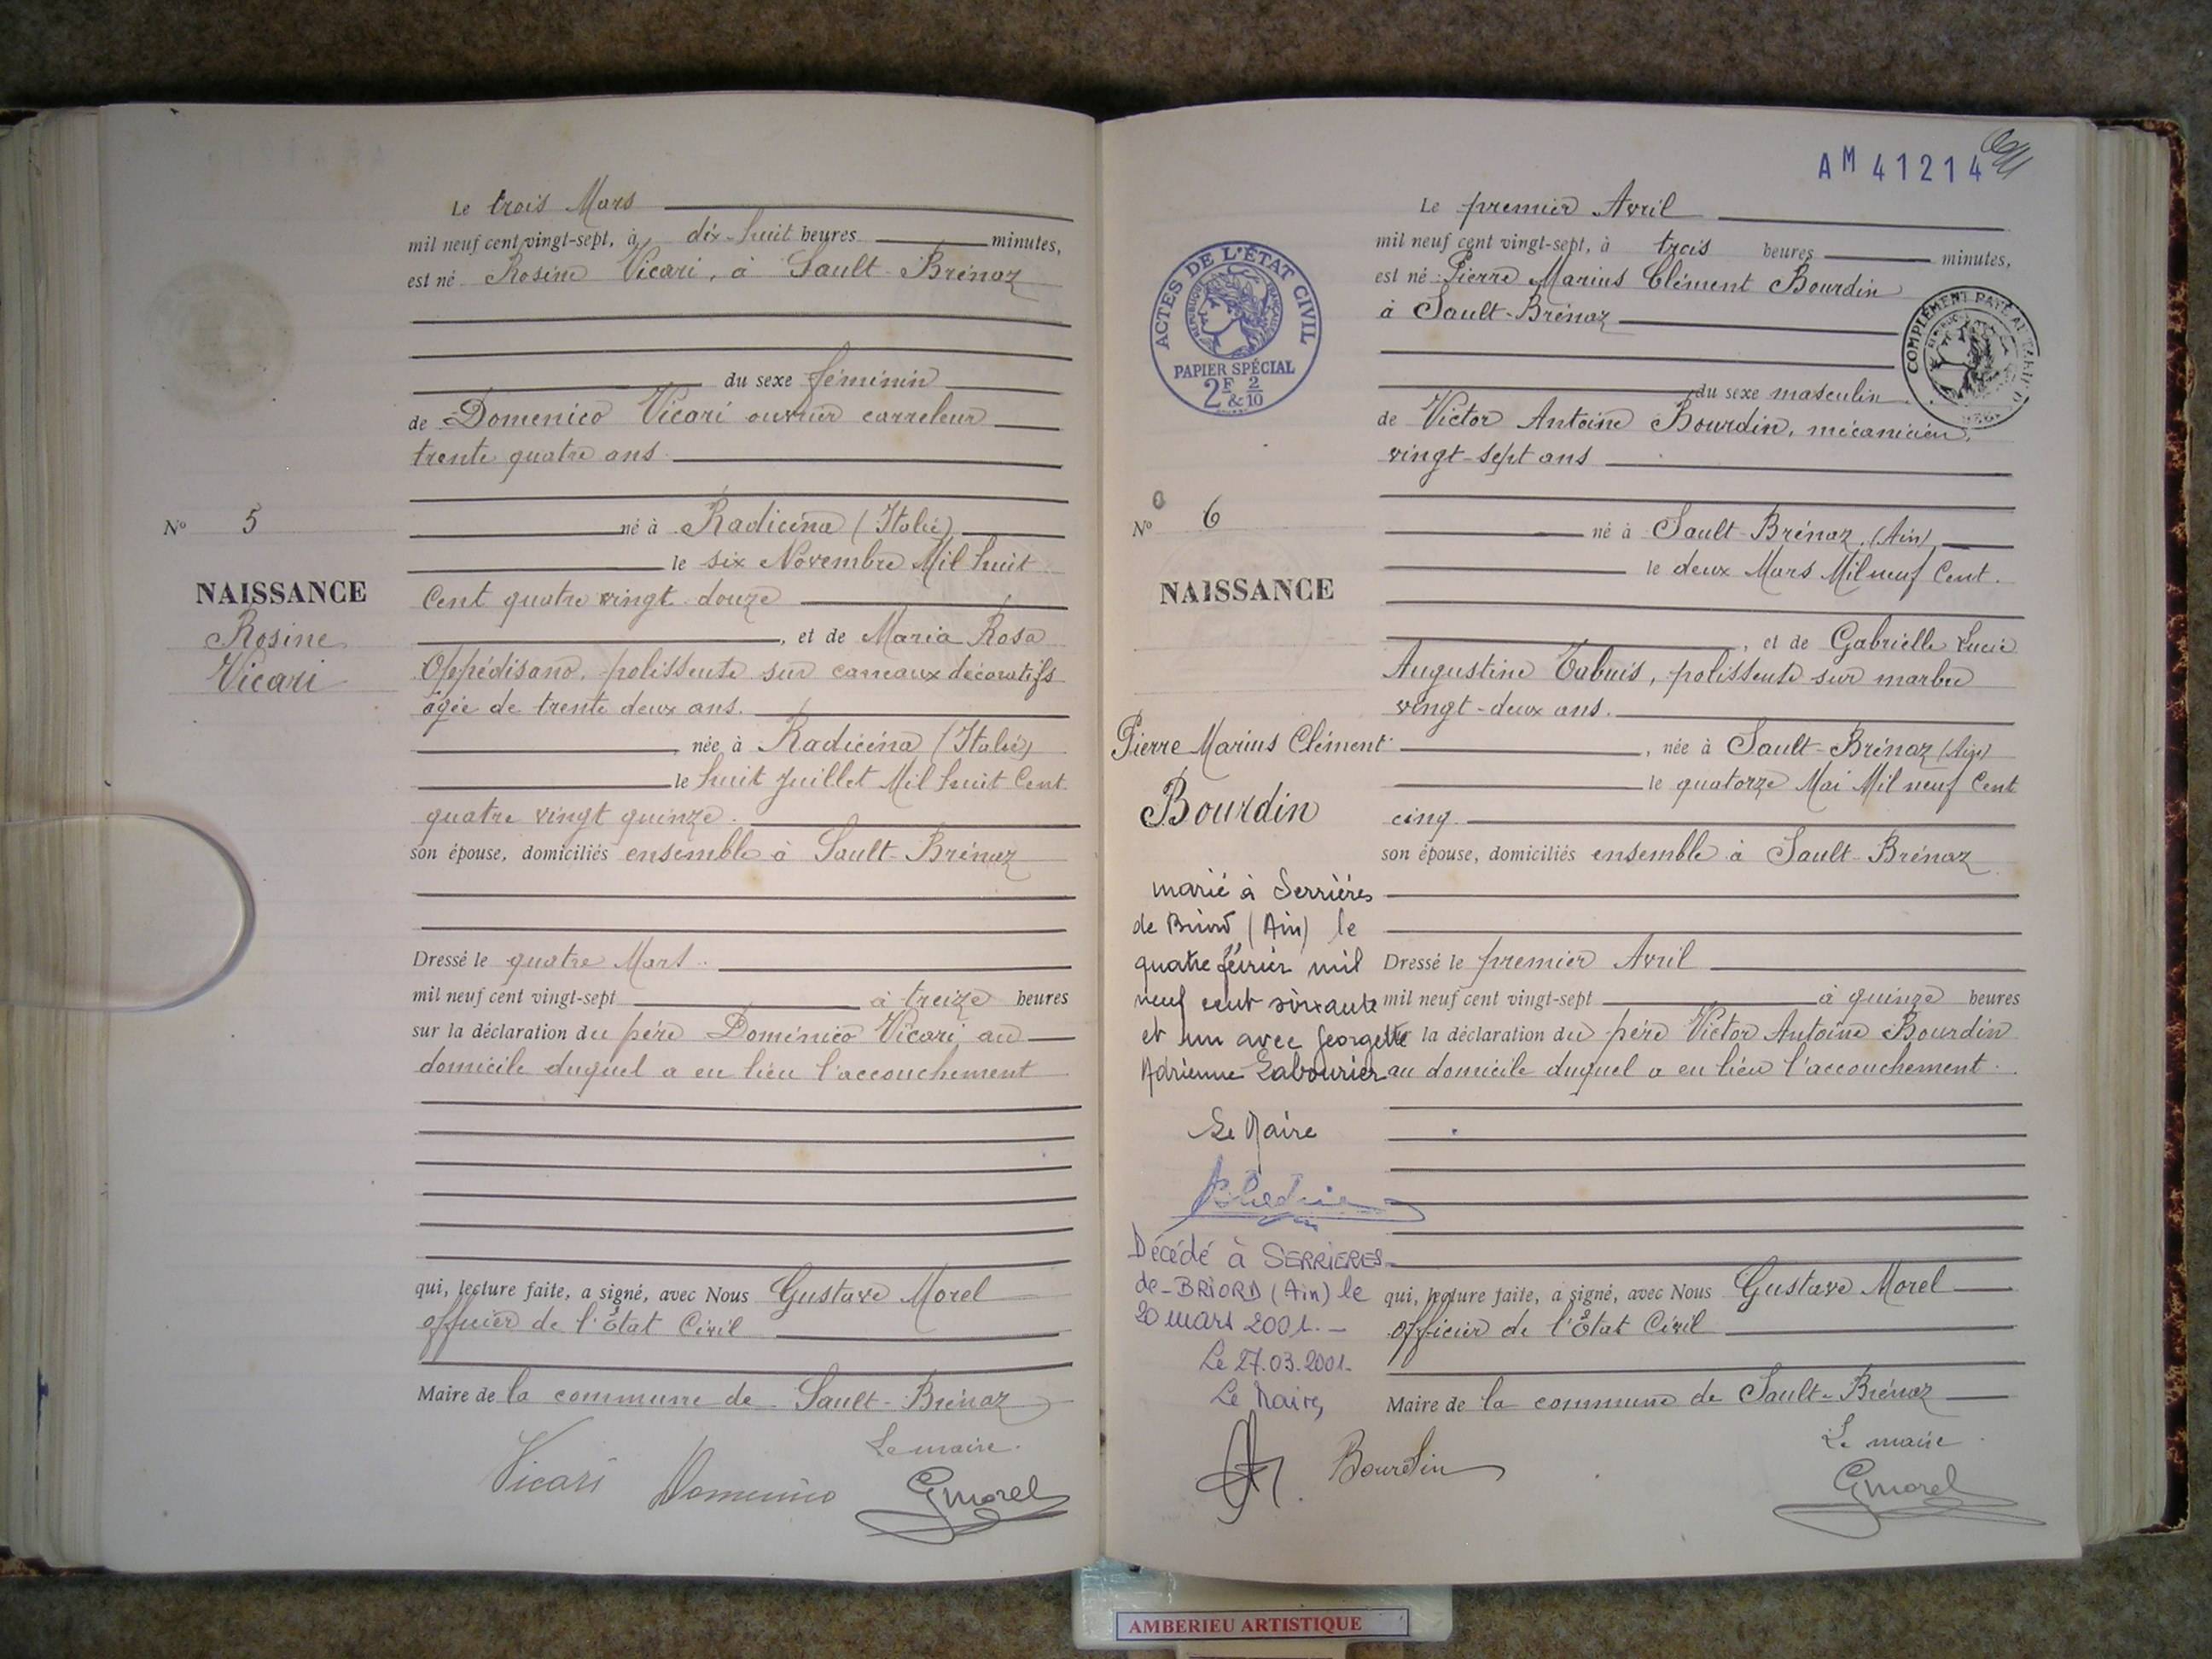 Le trois Mars
mil neuf cent vingt-sept, à dix-huit heures minutes,
est né Rosine Vicari, à Sault-Brénaz
du sexe féminin
de Domenico Vicari ouvrier carreleur
trente quatre ans
né à Radicena (Italie)
le six Novembre Mil huit
Cent quatre vingt douze
, et de Maria Rosa
Oppédisano, polisseuse sur carreaux décoratifs
âgée de trente deux ans.
née à Radicéna (Italie)
le huit Juillet Mil huit Cent
quatre vingt quinze.
son épouse, domiciliés ensemble à Sault-Brénaz
Dressé le quatre Mars
mil neuf cent vingt-sept à treize heures
sur la déclaration du père Doménico Vicari au
domicile duquel a eu lieu l'accouchement
qui, lecture faite, a signé, avec Nous Gustave Morel
officier de l'État Civil
Maire de la commune de Sault-Brénaz
Le maire.
Vicari Domenico GMorel
No 5
NAISSANCE
Rosine
Vicari
AM 41214
Le premier Avril
mil neuf cent vingt-sept, à trois heures minutes,
est né Pierre Marius Clément Bourdin
à Sault-Brénaz
du sexe masculin
de Victor Antoine Bourdin, mécanicien,
vingt-sept ans
né à Sault-Brénaz, (Ain)
le deux Mars Mil neuf Cent.
, et de Gabrielle Lucie
Augustine Tabuis, polisseuse sur marbre
vingt-deux ans.
, née à Sault-Brénaz (Ain)
le quatorze Mai Mil neuf Cent
cinq
son épouse, domiciliés ensemble à Sault-Brénaz
Dressé le premier Avril
mil neuf cent vingt-sept à quinze heures
sur la déclaration du père Victor Antoine Bourdin
au domicile duquel a eu lieu l'accouchement.
qui, lecture faite, a signé, avec Nous Gustave Morel
officier de l'État Civil
Maire de la commune de Sault-Brénaz
Le maire
Bourdin GMorel
ACTES DE L'ÉTAT CIVIL
RÉPUBLIQUE FRANÇAISE
PAPIER SPÉCIAL
2F & 2/10
COMPLÉMENT PAYÉ AU TARIF
No 6
NAISSANCE
Pierre Marius Clément
Bourdin
marié à Serrières
de Briord (Ain) le
quatre février mil
neuf cent soixante
et un avec Georgette
Adrienne Labourier
Le Maire
Décédé à SERRIERES-
de-BRIORD (Ain) le
20 mars 2001.-
Le 27.03.2001-
Le Maire,
AMBERIEU ARTISTIQUE